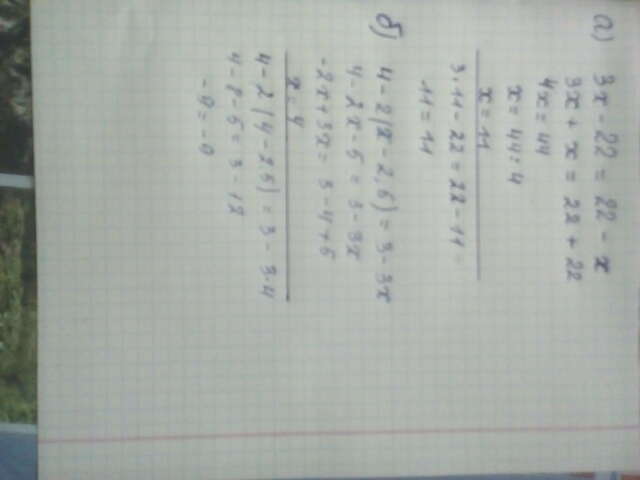 а) 3x - 22 = 22 - x
3x + x = 22 + 22
4x = 44
x = 44 : 4
x = 11
3·11 - 22 = 22 - 11
11 = 11
б) 4 - 2(x - 2,5) = 3 - 3x
4 - 2x - 5 = 3 - 3x
-2x + 3x = 3 - 4 + 5
x = 4
4 - 2(4 - 2,5) = 3 - 3·4
4 - 8 - 5 = 3 - 12
-9 = -9